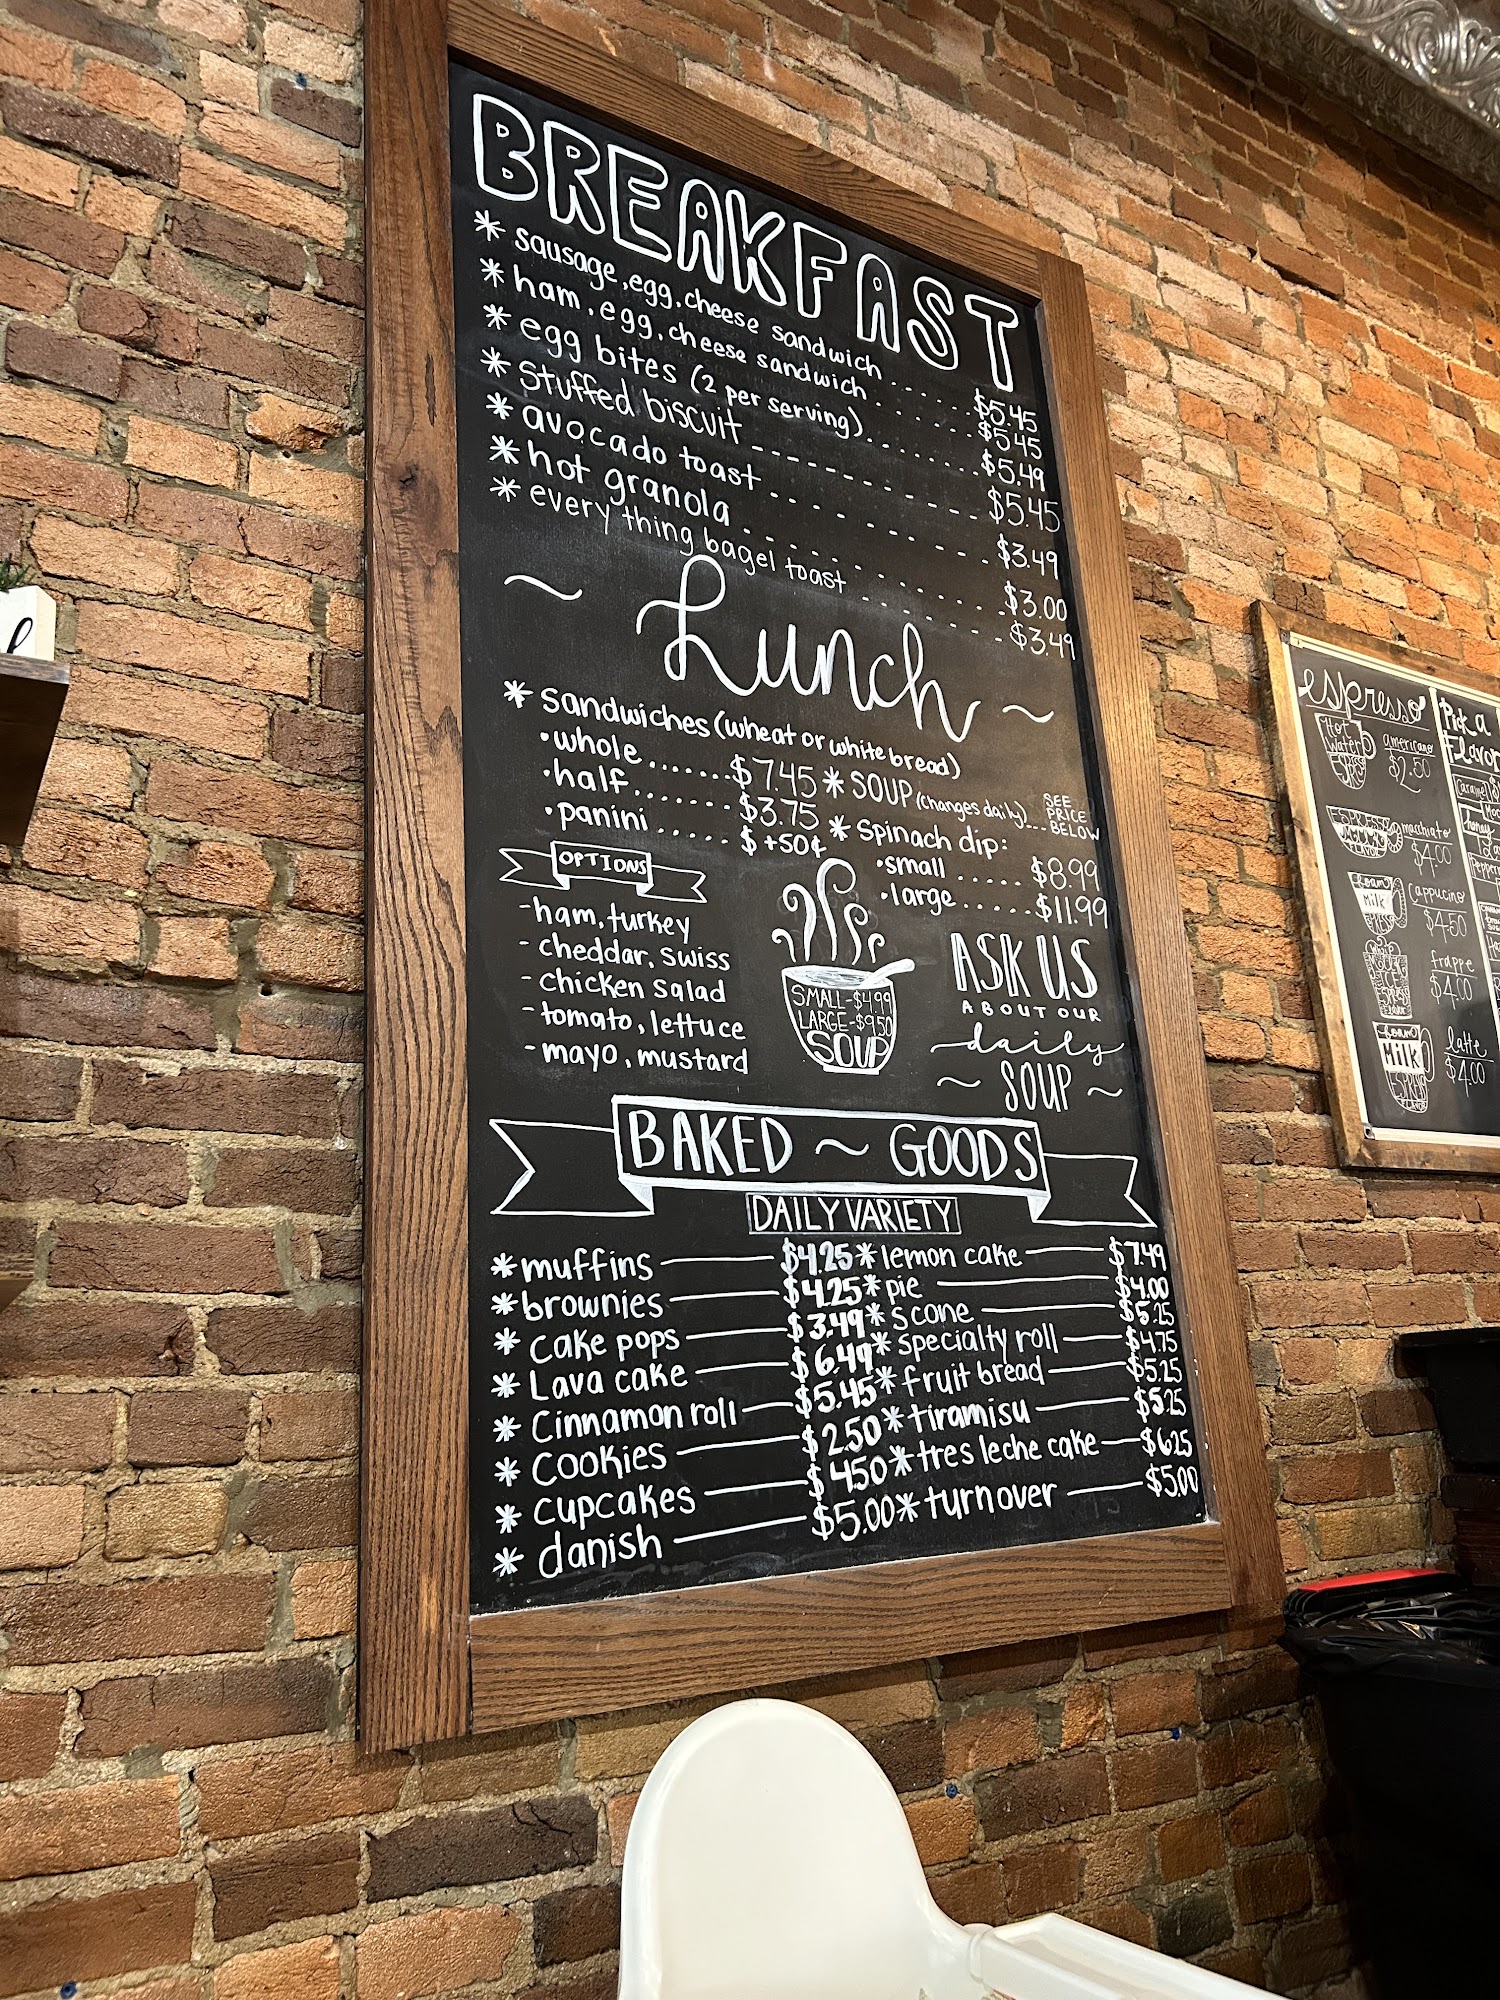 BREAKFAST
* sausage, egg, cheese sandwich ..... $5.45
* ham, egg, cheese sandwich ...... $5.45
* egg bites (2 per serving) ....... $5.49
* stuffed biscuit --------- $5.45
* avocado toast ......... $3.49
* hot granola ......... $3.00
* everything bagel toast ....... $3.49
~ Lunch ~
* sandwiches (wheat or white bread)
• whole ....... $7.45
• half ....... $3.75
• panini ..... $ +50¢
* SOUP (changes daily) ... SEE PRICE BELOW
* spinach dip:
• small ..... $8.99
• large ..... $11.99
OPTIONS
- ham, turkey
- cheddar, swiss
- chicken salad
- tomato, lettuce
- mayo, mustard
SMALL-$4.99
LARGE-$9.50
SOUP
ASK US
ABOUT OUR
daily
~ SOUP ~
BAKED ~ GOODS
DAILY VARIETY
* muffins — $4.25
* brownies — $4.25
* cake pops — $3.49
* Lava cake — $6.49
* Cinnamon roll — $5.45
* cookies — $2.50
* cupcakes — $4.50
* danish — $5.00
* lemon cake — $7.49
* pie — $4.00
* scone — $5.25
* specialty roll — $4.75
* fruit bread — $5.25
* tiramisu — $5.25
* tres leche cake — $6.25
* turnover — $5.00
espresso
Hot
Water
americano
$2.50
ESPRESSO
macchiato
$4.00
foam
Milk
cappucino
$4.50
frappe
$4.00
foam
Milk
latte
$4.00
Pick a
Flavor
Caramel
honey